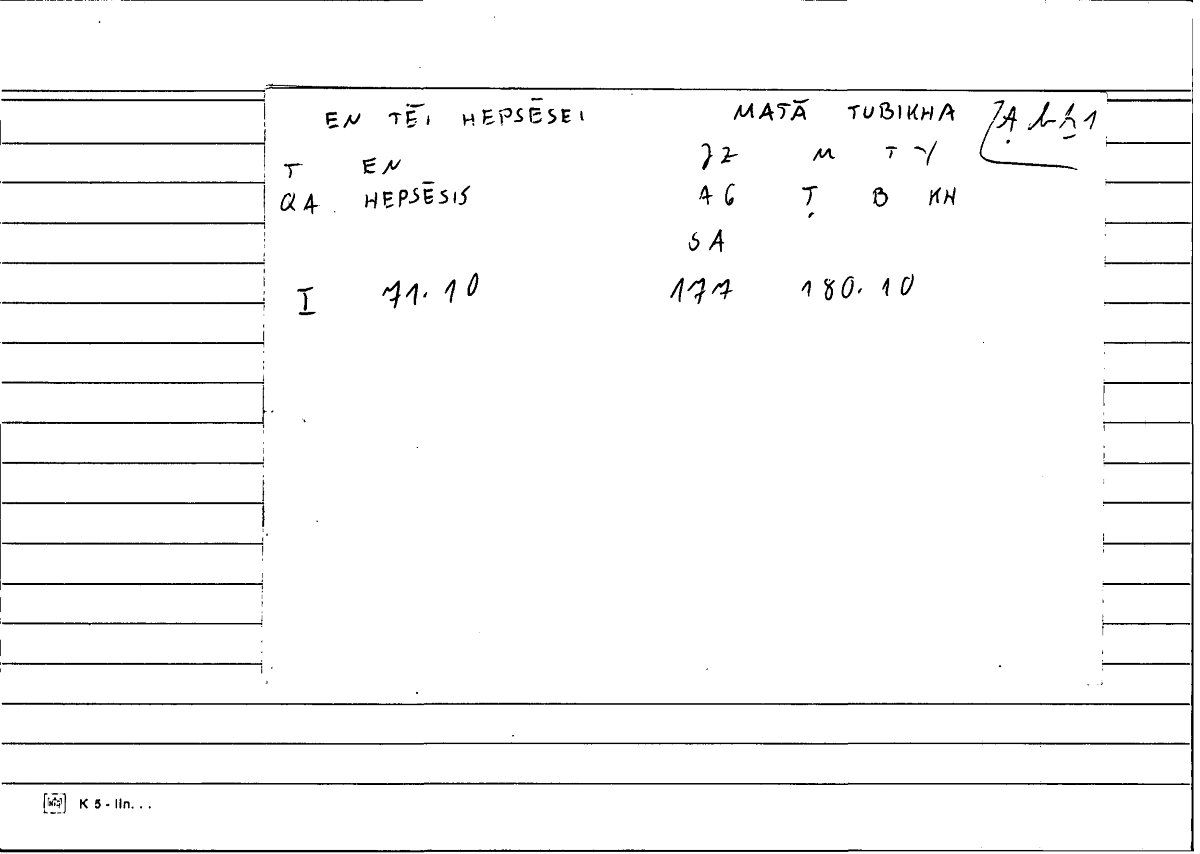 EN TĒI HEPSĒSEI MATĀ TUBIKHA
T EN ZZ M T Y
QA HEPSĒSIS AG Ṭ B KH
SA
I 71.10 177 180.10
K 5 - lin...